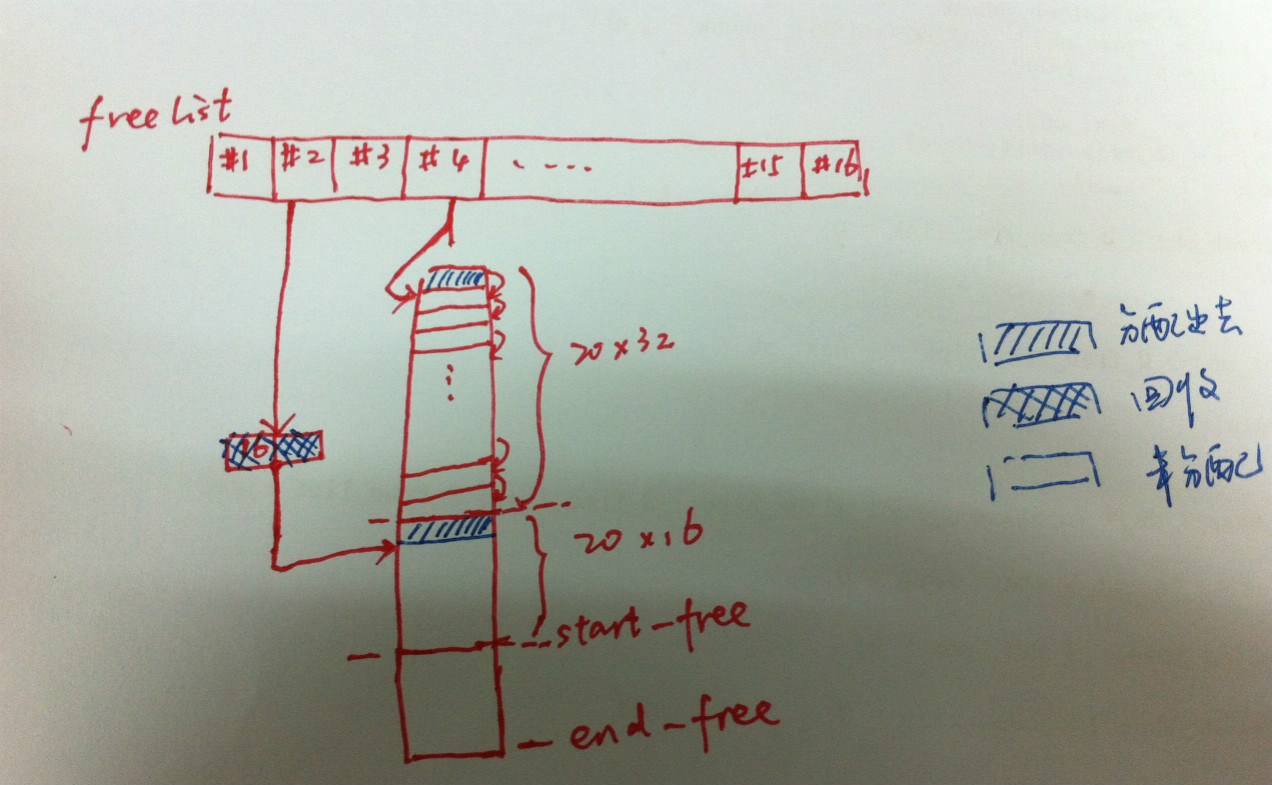 free list
#1 #2 #3 #4 ..... #15 #16
16
20 x 32
20 x 16
start_free
end_free
分配出去
回收
未分配